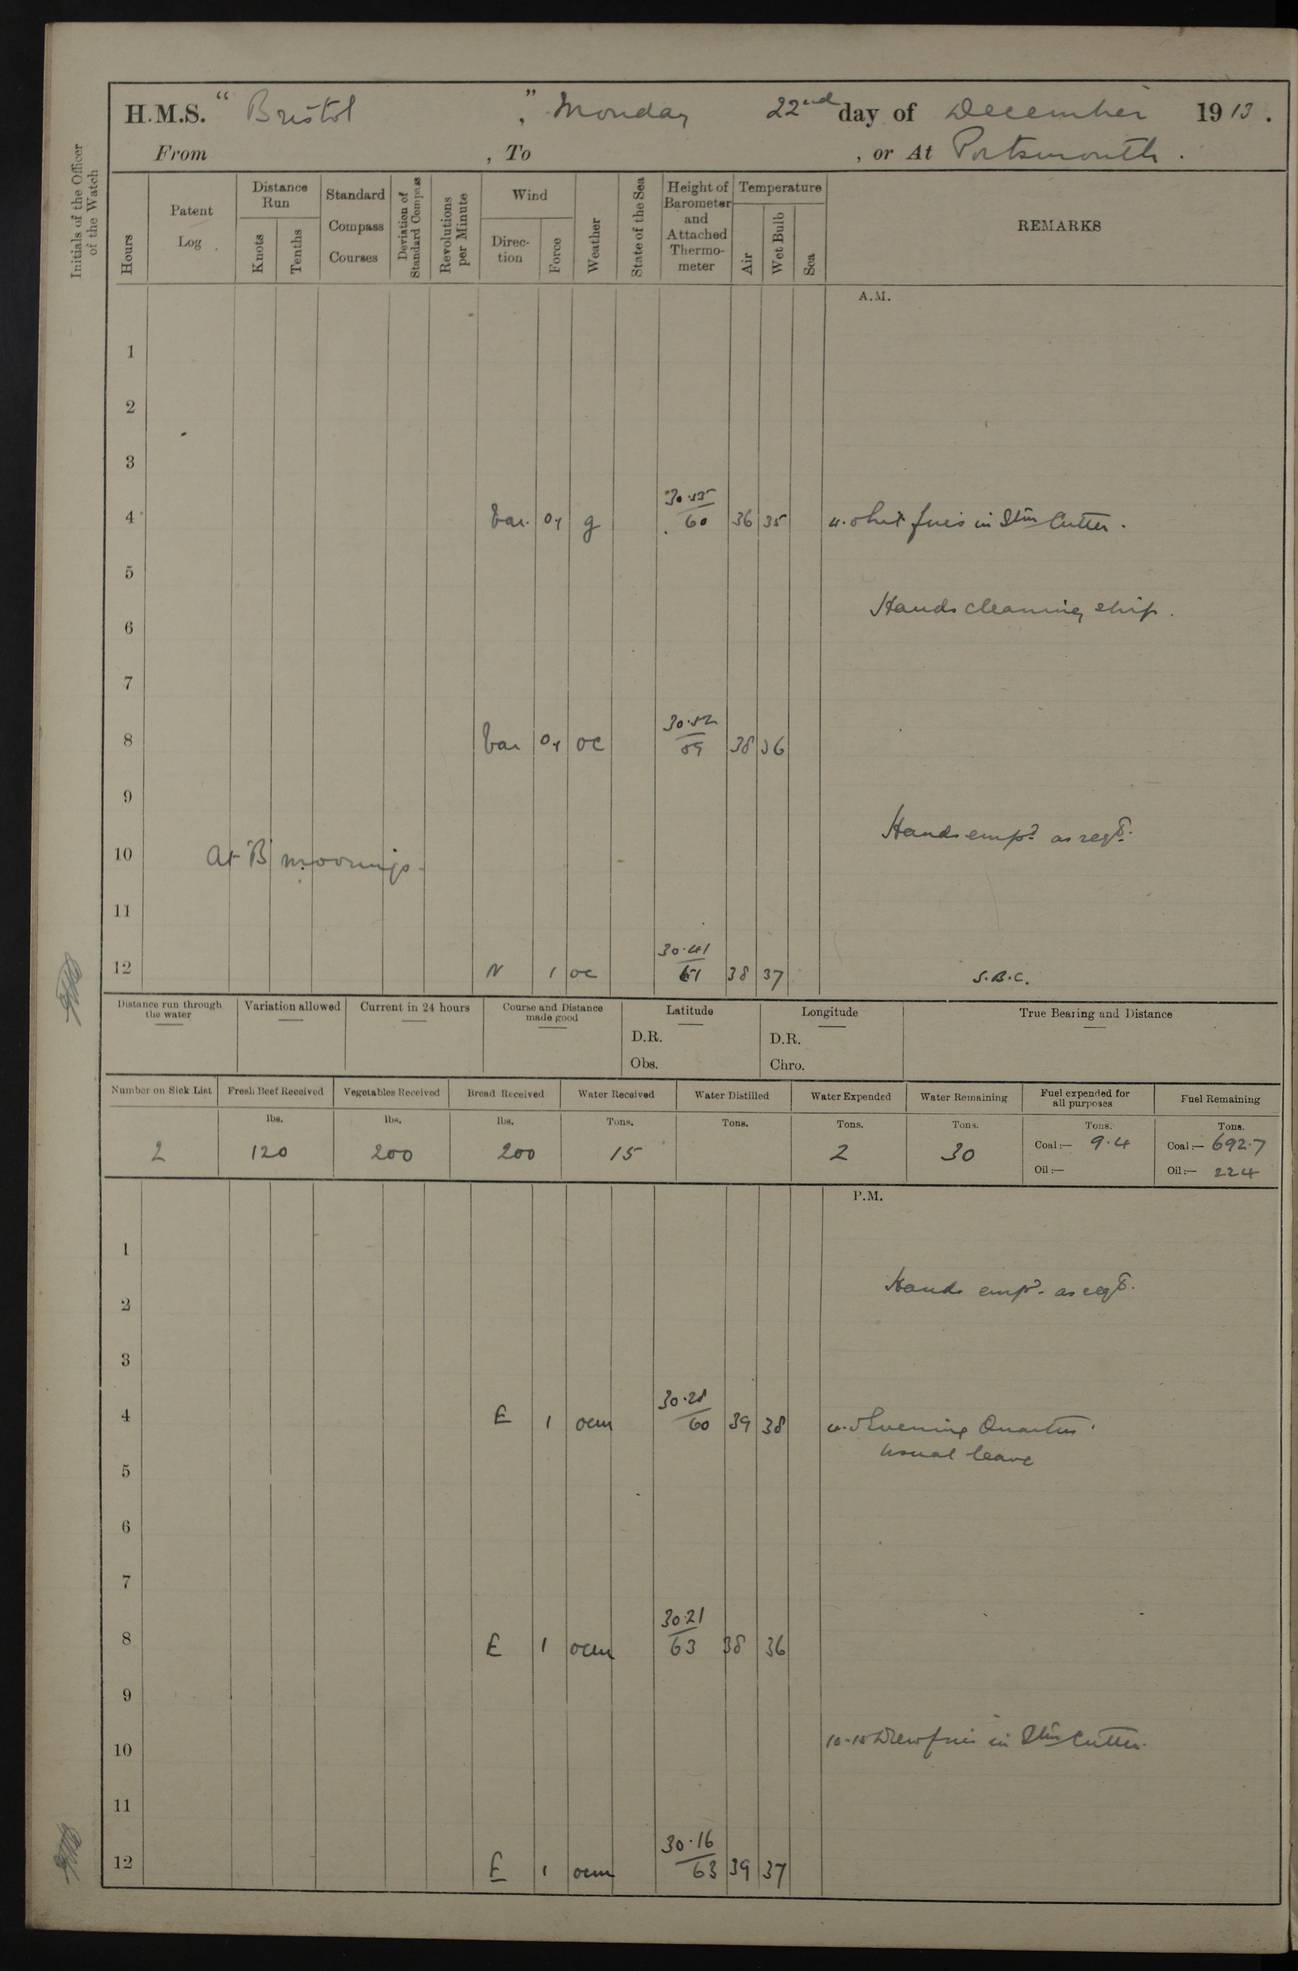 H.M.S. "Bristol", Monday 22nd day of December 1913.
From , To , or At Portsmouth.
Initials of the Officer of the Watch
Hours
Patent Log
Distance Run
Knots
Tenths
Standard Compass Courses
Deviation of Standard Compass
Revolutions per Minute
Wind
Direction
Force
Weather
State of the Sea
Height of Barometer and Attached Thermometer
Temperature
Air
Wet Bulb
Sea
REMARKS
A.M.
1
2
3
30.55
4 Var. 0-1 g 60 36 35 4.0 Lit fires in Stm Cutter.
5
Hands cleaning ship.
6
7
30.52
8 Var 0-1 oc 59 38 36
9
Hands empd. as reqd.
10 At B moorings
11
30.41
12 N 1 oc 61 38 37 S.B.C.
Distance run through the water
Variation allowed
Current in 24 hours
Course and Distance made good
Latitude
D.R.
Obs.
Longitude
D.R.
Chro.
True Bearing and Distance
Number on Sick List
Fresh Beef Received
Vegetables Received
Bread Received
Water Received
Water Distilled
Water Expended
Water Remaining
Fuel expended for all purposes
Fuel Remaining
lbs. lbs. lbs. Tons. Tons. Tons. Tons. Tons. Tons.
2 120 200 200 15 2 30 Coal:— 9.4 Coal:— 692.7
Oil:— Oil:— 224
P.M.
1
Hands empd. as reqd.
2
3
30.28
4 E 1 ocm 60 39 38 4.0 Evening Quarters.
Usual leave
5
6
7
30.21
8 E 1 ocm 63 38 36
9
10 10-10 Drew fires in Stm Cutter.
11
30.16
12 E 1 ocm 63 39 37